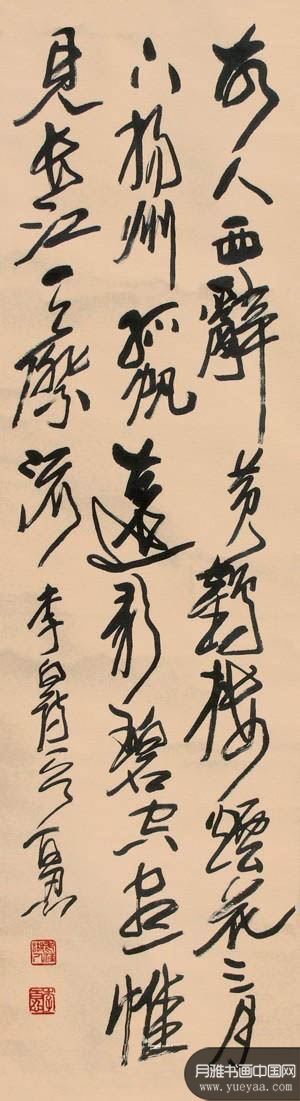 故人西辭黃鶴樓煙花三月
下揚州孤帆遠影碧空盡惟
見長江天際流
李白詩一首
月雅书画中国网
www.yueyaa.com